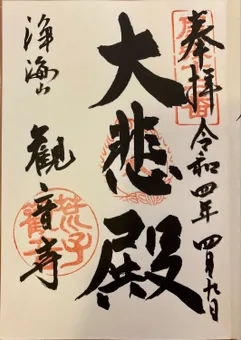 奉拝
令和四年 四月九日
大悲殿
浄海山
観音寺